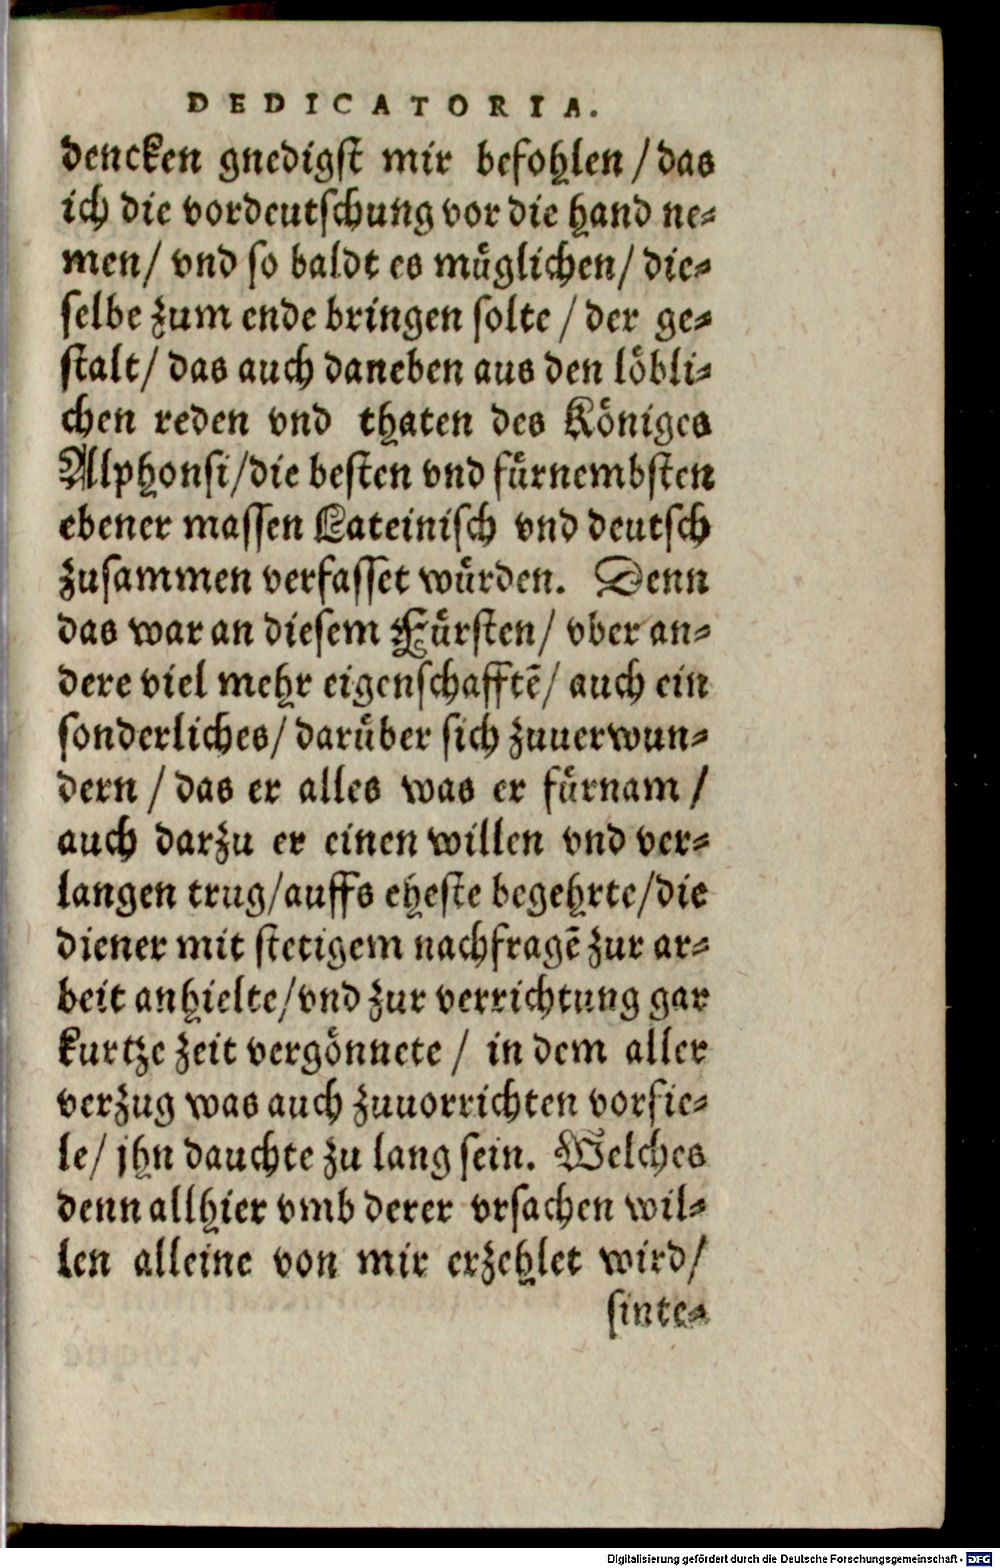 DEDICATORIA.
dencken gnedigst mir befohlen / das
ich die vordeutschung vor die hand ne⸗
men / vnd so baldt es muͤglichen / die⸗
selbe zum ende bringen solte / der ge⸗
stalt / das auch daneben aus den loͤbli⸗
chen reden vnd thaten des Koͤniges
Alphonsi / die besten vnd fuͤrnembsten
ebener massen Lateinisch vnd deutsch
zusammen verfasset wuͤrden. Denn
das war an diesem Fuͤrsten / vber an⸗
dere viel mehr eigenschafftẽ / auch ein
sonderliches / daruͤber sich zuuerwun⸗
dern / das er alles was er fuͤrnam /
auch darzu er einen willen vnd ver⸗
langen trug / auffs eheste begehrte / die
diener mit stetigem nachfragẽ zur ar⸗
beit anhielte / vnd zur verrichtung gar
kurtze zeit vergoͤnnete / in dem aller
verzug was auch zuuorrichten vorfie⸗
le / jhn dauchte zu lang sein. Welches
denn allhier vmb derer vrsachen wil⸗
len alleine von mir erzehlet wird /
sinte⸗
Digitalisierung gefördert durch die Deutsche Forschungsgemeinschaft - DFG